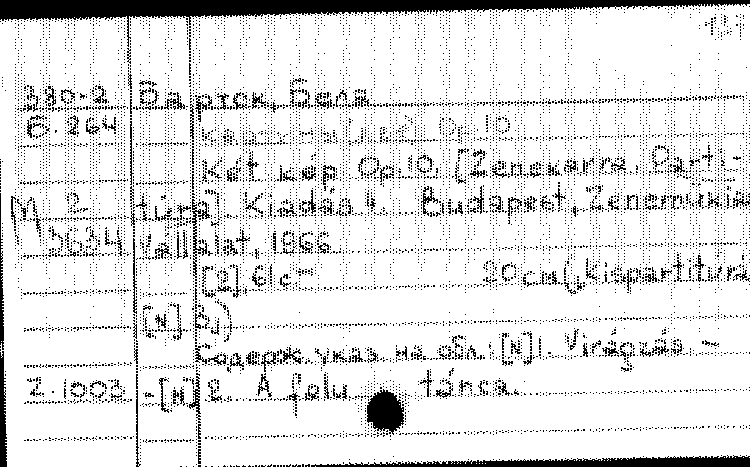 137
380-2 Барток, Бела
Б.264
Két kép Op.10. [Zenekarra. Parti-
M 2 túra] Kiadás 4. Budapest, Zeneműkia
3634 Vállalat, 1966
[2], 61 c- 20 cm („Kispartitúrá
[N]
Содерж. указ на обл.: [N] 1. Virágzás. -
Z.1003 -[N] 2. A falu tánca.